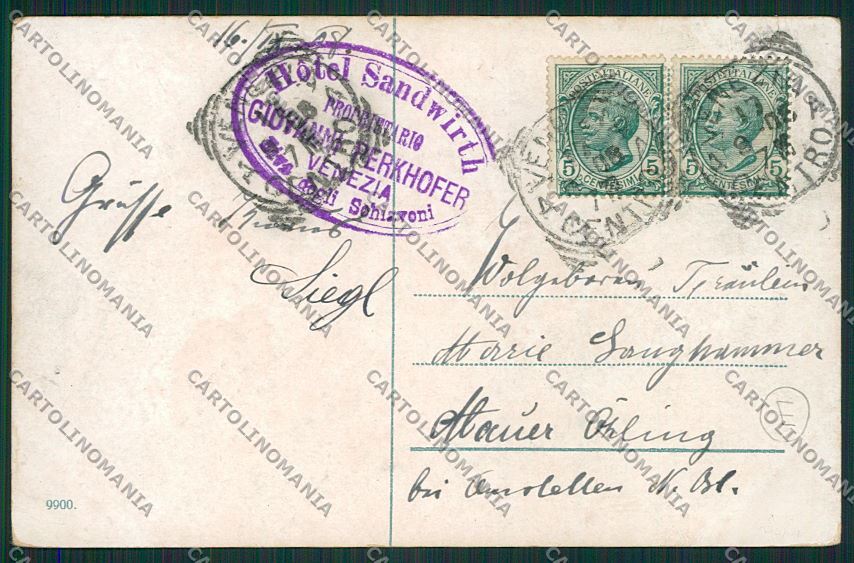 Hôtel Sandwirth
PROPRIETARIO
GIOVANNI PERKHOFER
VENEZIA
Riva degli Schiavoni
POSTE ITALIANE
5 CENTESIMI 5
POSTE ITALIANE
5 CENTESIMI 5
VENEZIA
CENTRO
Grüsse
Siegl
Wolgeboren Fräulein
Marie Langhammer
Mauer Öhling
bei Amstetten N. Öst.
9900.
CARTOLINOMANIA